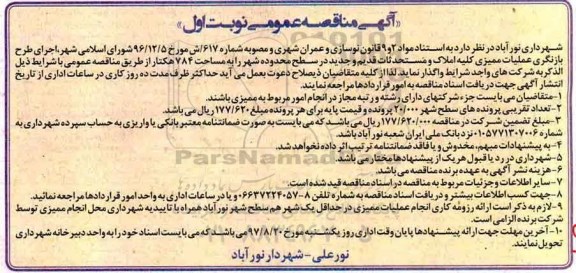 «آگهی مناقصه عمومی نوبت اول»
شهرداری نورآباد در نظر دارد به استناد مواد ۲و۹ قانون نوسازی و عمران شهری و مصوبه شماره ۶۱۷/ش مورخ ۹۶/۱۲/۵ شورای اسلامی شهر، اجرای طرح
بازنگری عملیات ممیزی کلیه املاک و مستحدثات قدیم و جدید در سطح محدوده شهر را به مساحت ۷۸۴ هکتار از طریق مناقصه عمومی با شرایط ذیل
الذکر به شرکت های واجد شرایط واگذار نماید لذا از کلیه متقاضیان ذیصلاح دعوت بعمل می آید حداکثر ظرف مدت ده روز کاری در ساعات اداری از تاریخ
انتشار آگهی جهت دریافت اسناد مناقصه به امور قراردادها مراجعه نمایند.
۱-متقاضیان می بایست جزء شرکتهای دارای رشته و رتبه مجاز در انجام امور مربوط به ممیزی باشند.
۲-تعداد تقریبی پرونده های سطح شهر ۲۰/۰۰۰ پرونده و قیمت پایه برای هر پرونده مبلغ ۱۷۷/۶۲۰ ریال می باشد.
۳-مبلغ تضمین شرکت در مناقصه ۱۷۷/۶۲۰/۰۰۰ ریال می باشد که می بایست به صورت ضمانتنامه معتبر بانکی یا واریزی به حساب سپرده شهرداری به
شماره ۰۱۰۵۷۷۱۳۰۷۰۰۶ نزد بانک ملی ایران شعبه نورآباد باشد.
۴-به پیشنهادات مبهم، مخدوش و یا فاقد ضمانتنامه ترتیب اثر داده نخواهد شد.
۵-شهرداری در رد یا قبول هر یک از پیشنهادها مختار می باشد.
۶-هزینه نشر آگهی به عهده برنده مناقصه می باشد.
۷-سایر اطلاعات و جزئیات مربوط به مناقصه در اسناد مناقصه قید شده است.
۸-جهت کسب اطلاعات بیشتر و دریافت اسناد مناقصه به شماره تلفن ۸-۰۶۶۳۷۲۲۴۰۵۷ و یا در ساعات اداری به واحد امور قراردادها مراجعه نمائید.
۹-لازم به ذکر است ارائه رزومه کاری انجام عملیات ممیزی در حداقل یک شهر هم سطح شهر نورآباد همراه با تاییدیه شهرداری محل انجام ممیزی توسط
شرکت برنده الزامی است.
۱۰-آخرین مهلت جهت ارائه پیشنهادها پایان وقت اداری روز یکشنبه مورخ ۹۷/۸/۲۰ می باشد که می بایست اسناد خود را به واحد دبیرخانه شهرداری
تحویل نمایند.
نورعلی-شهردار نورآباد